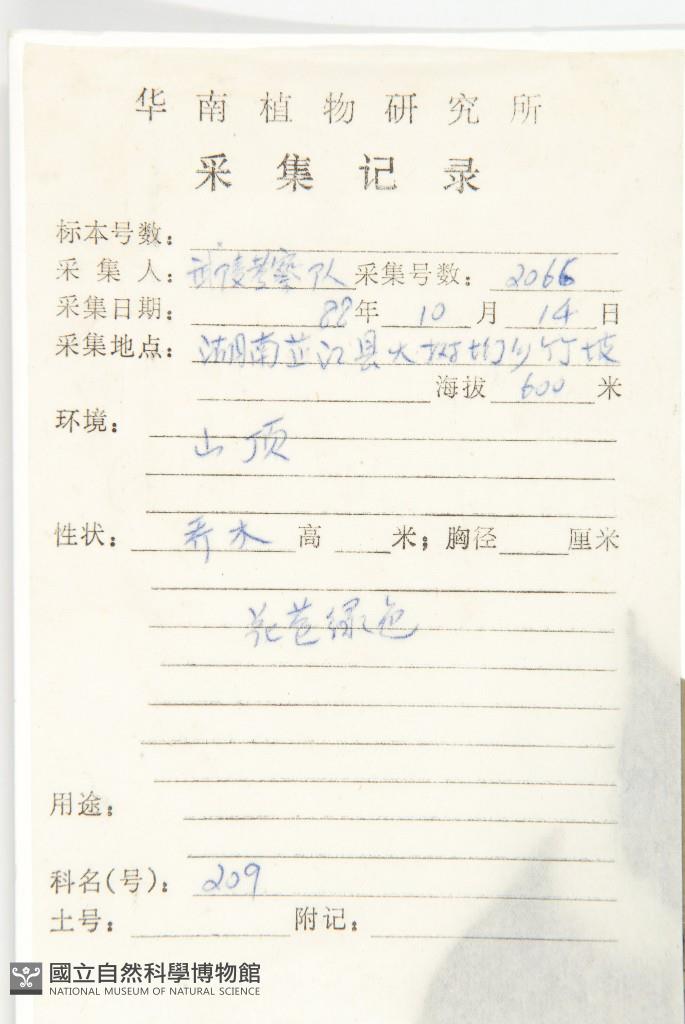 华南植物研究所
采集记录
标本号数：
采集人：武陵考察队 采集号数：2066
采集日期：88年10月14日
采集地点：湖南芷江县大树坳乡竹坡
海拔 600 米
环境：
山顶
性状：乔木 高 米；胸径 厘米
花苞绿色
用途：
科名(号)：209
土号： 附记：
國立自然科學博物館
NATIONAL MUSEUM OF NATURAL SCIENCE